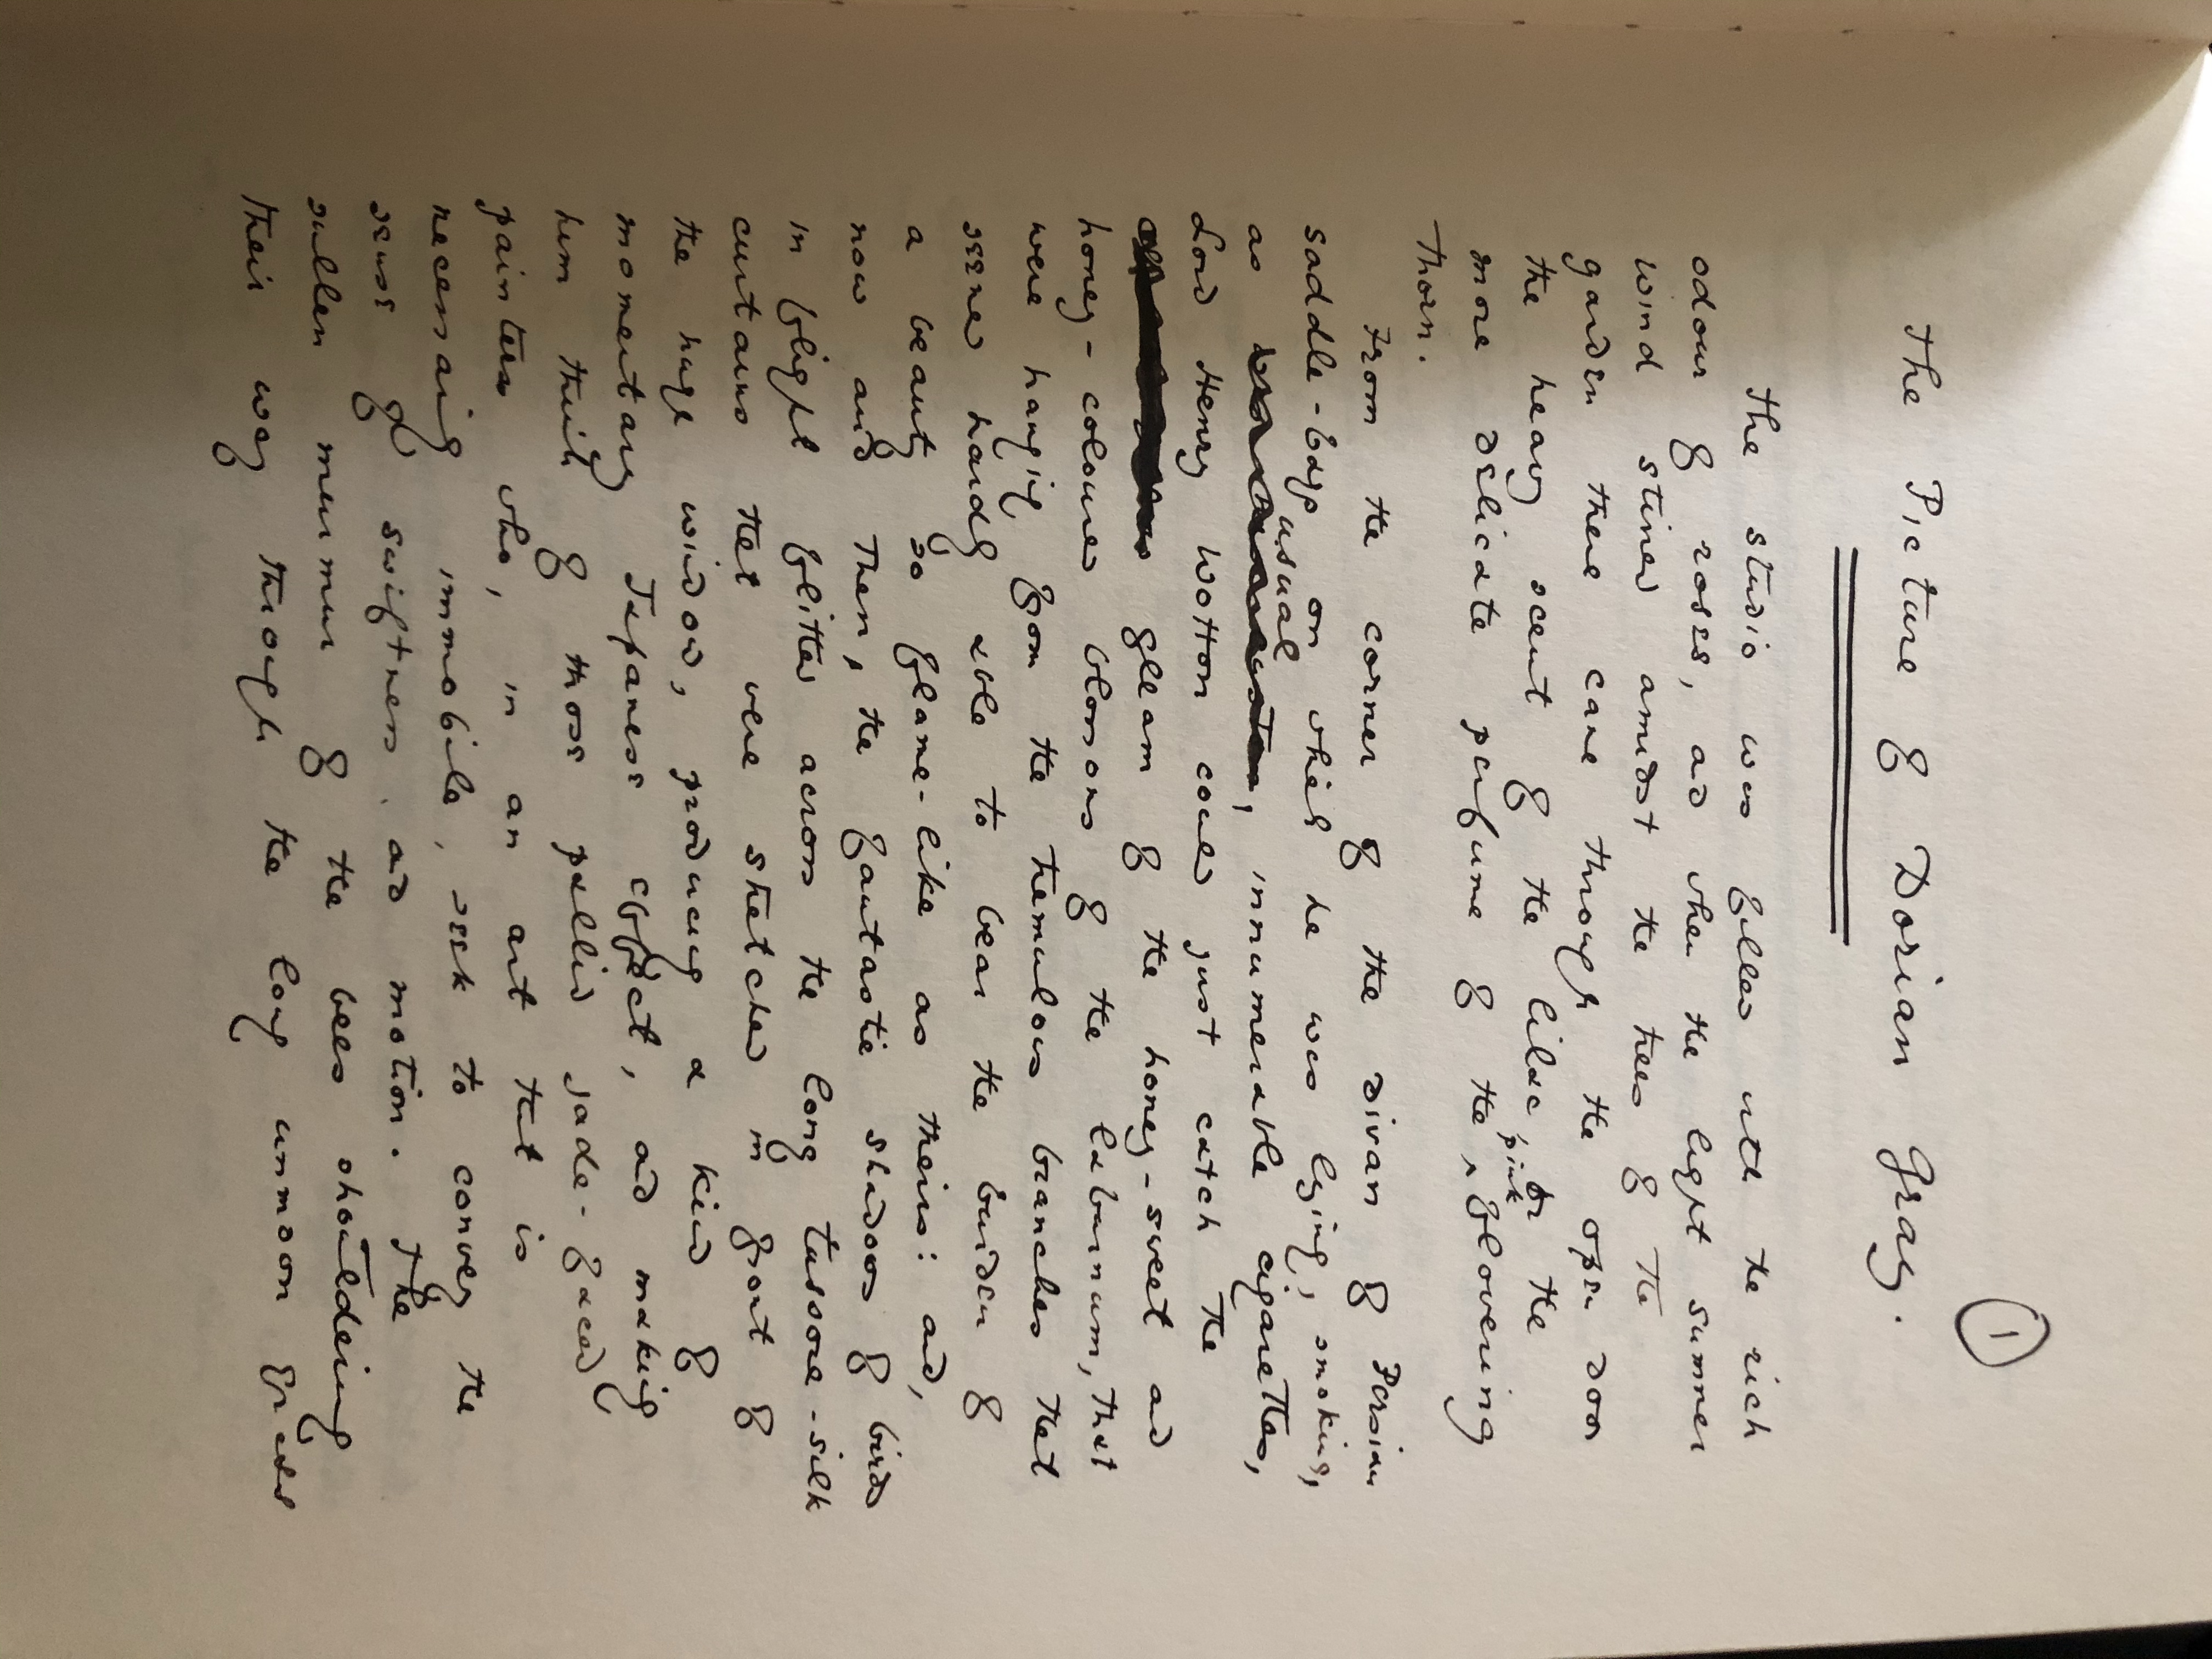 ①
The Picture of Dorian Gray.
The studio was filled with the rich
odour of roses, and when the light summer
wind stirred amidst the trees of the
garden there came through the open door
the heavy scent of the lilac, or the
more delicate perfume of the pink flowering
thorn.
From the corner of the divan of Persian
saddle-bags on which he was lying, smoking,
as usual, innumerable cigarettes,
Lord Henry Wotton could just catch the
gleam of the honey-sweet and
honey-coloured blossoms of the laburnum, that
were hanging from the tremulous branches that
seemed hardly able to bear the burden of
a beauty so flame-like as theirs: and,
now and then, the fantastic shadows of birds
in flight flitted across the long tussore-silk
curtains that were stretched in front of
the huge window, producing a kind of
momentary Japanese effect, and making
him think of those pallid jade-faced
painters who, in an art that is
necessarily immobile, seek to convey the
sense of swiftness and motion. The
sullen murmur of the bees shouldering
their way through the long unmown grass